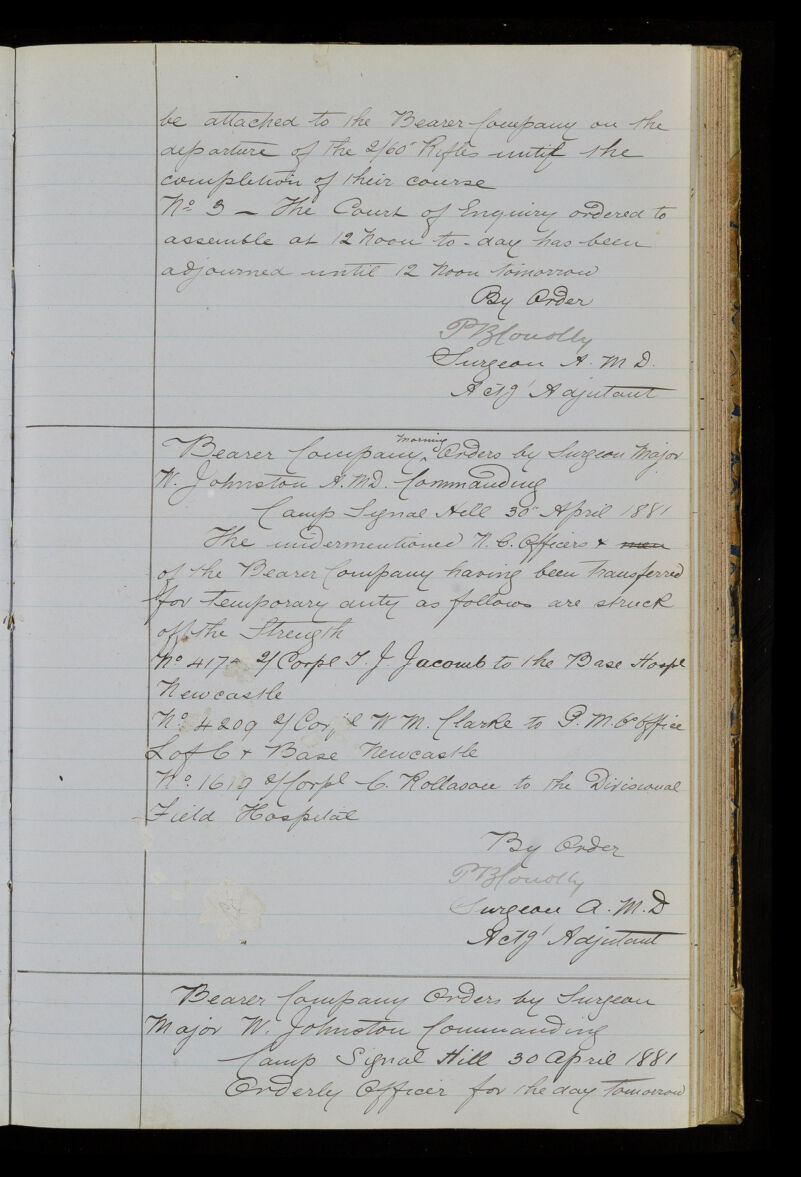 be attached to the Bearer Company on the
departure of the 2/60" Rifles until the
completion of their course
No 3 - The Court of Enquiry ordered to
assemble at 12 Noon to-day has been
adjourned until 12 Noon tomorrow
By Order
PBConolly
Surgeon A. M D.
Actg' Adjutant
Bearer Company Morning Orders by Surgeon Major
W. Johnston A.M.D. Commanding
Camp Signal Hill 30" April 1881
The undermentioned N. C. Officers & men
of the Bearer Company having been transferred
for temporary duty as follows are struck
off the Strength
No 4170 2/Corpl T. J. Jacomb to the Base Hospl
Newcastle
No. 4209 2/Corpl W M. Clarke to P. M. Os office
L of C & Base Newcastle
No. 1619 2/Corpl C. Rollason to the Divisional
Field Hospital
By Order
PBConolly
Surgeon A. M. D
Actg' Adjutant
Bearer Company Orders by Surgeon
Major W. Johnston Commanding
Camp Signal Hill 30 April 1881
Orderly Officer for the day tomorrow